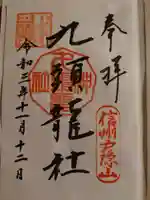 奉拝
信州戸隠山
九頭龍社
令和三年十一月十二日